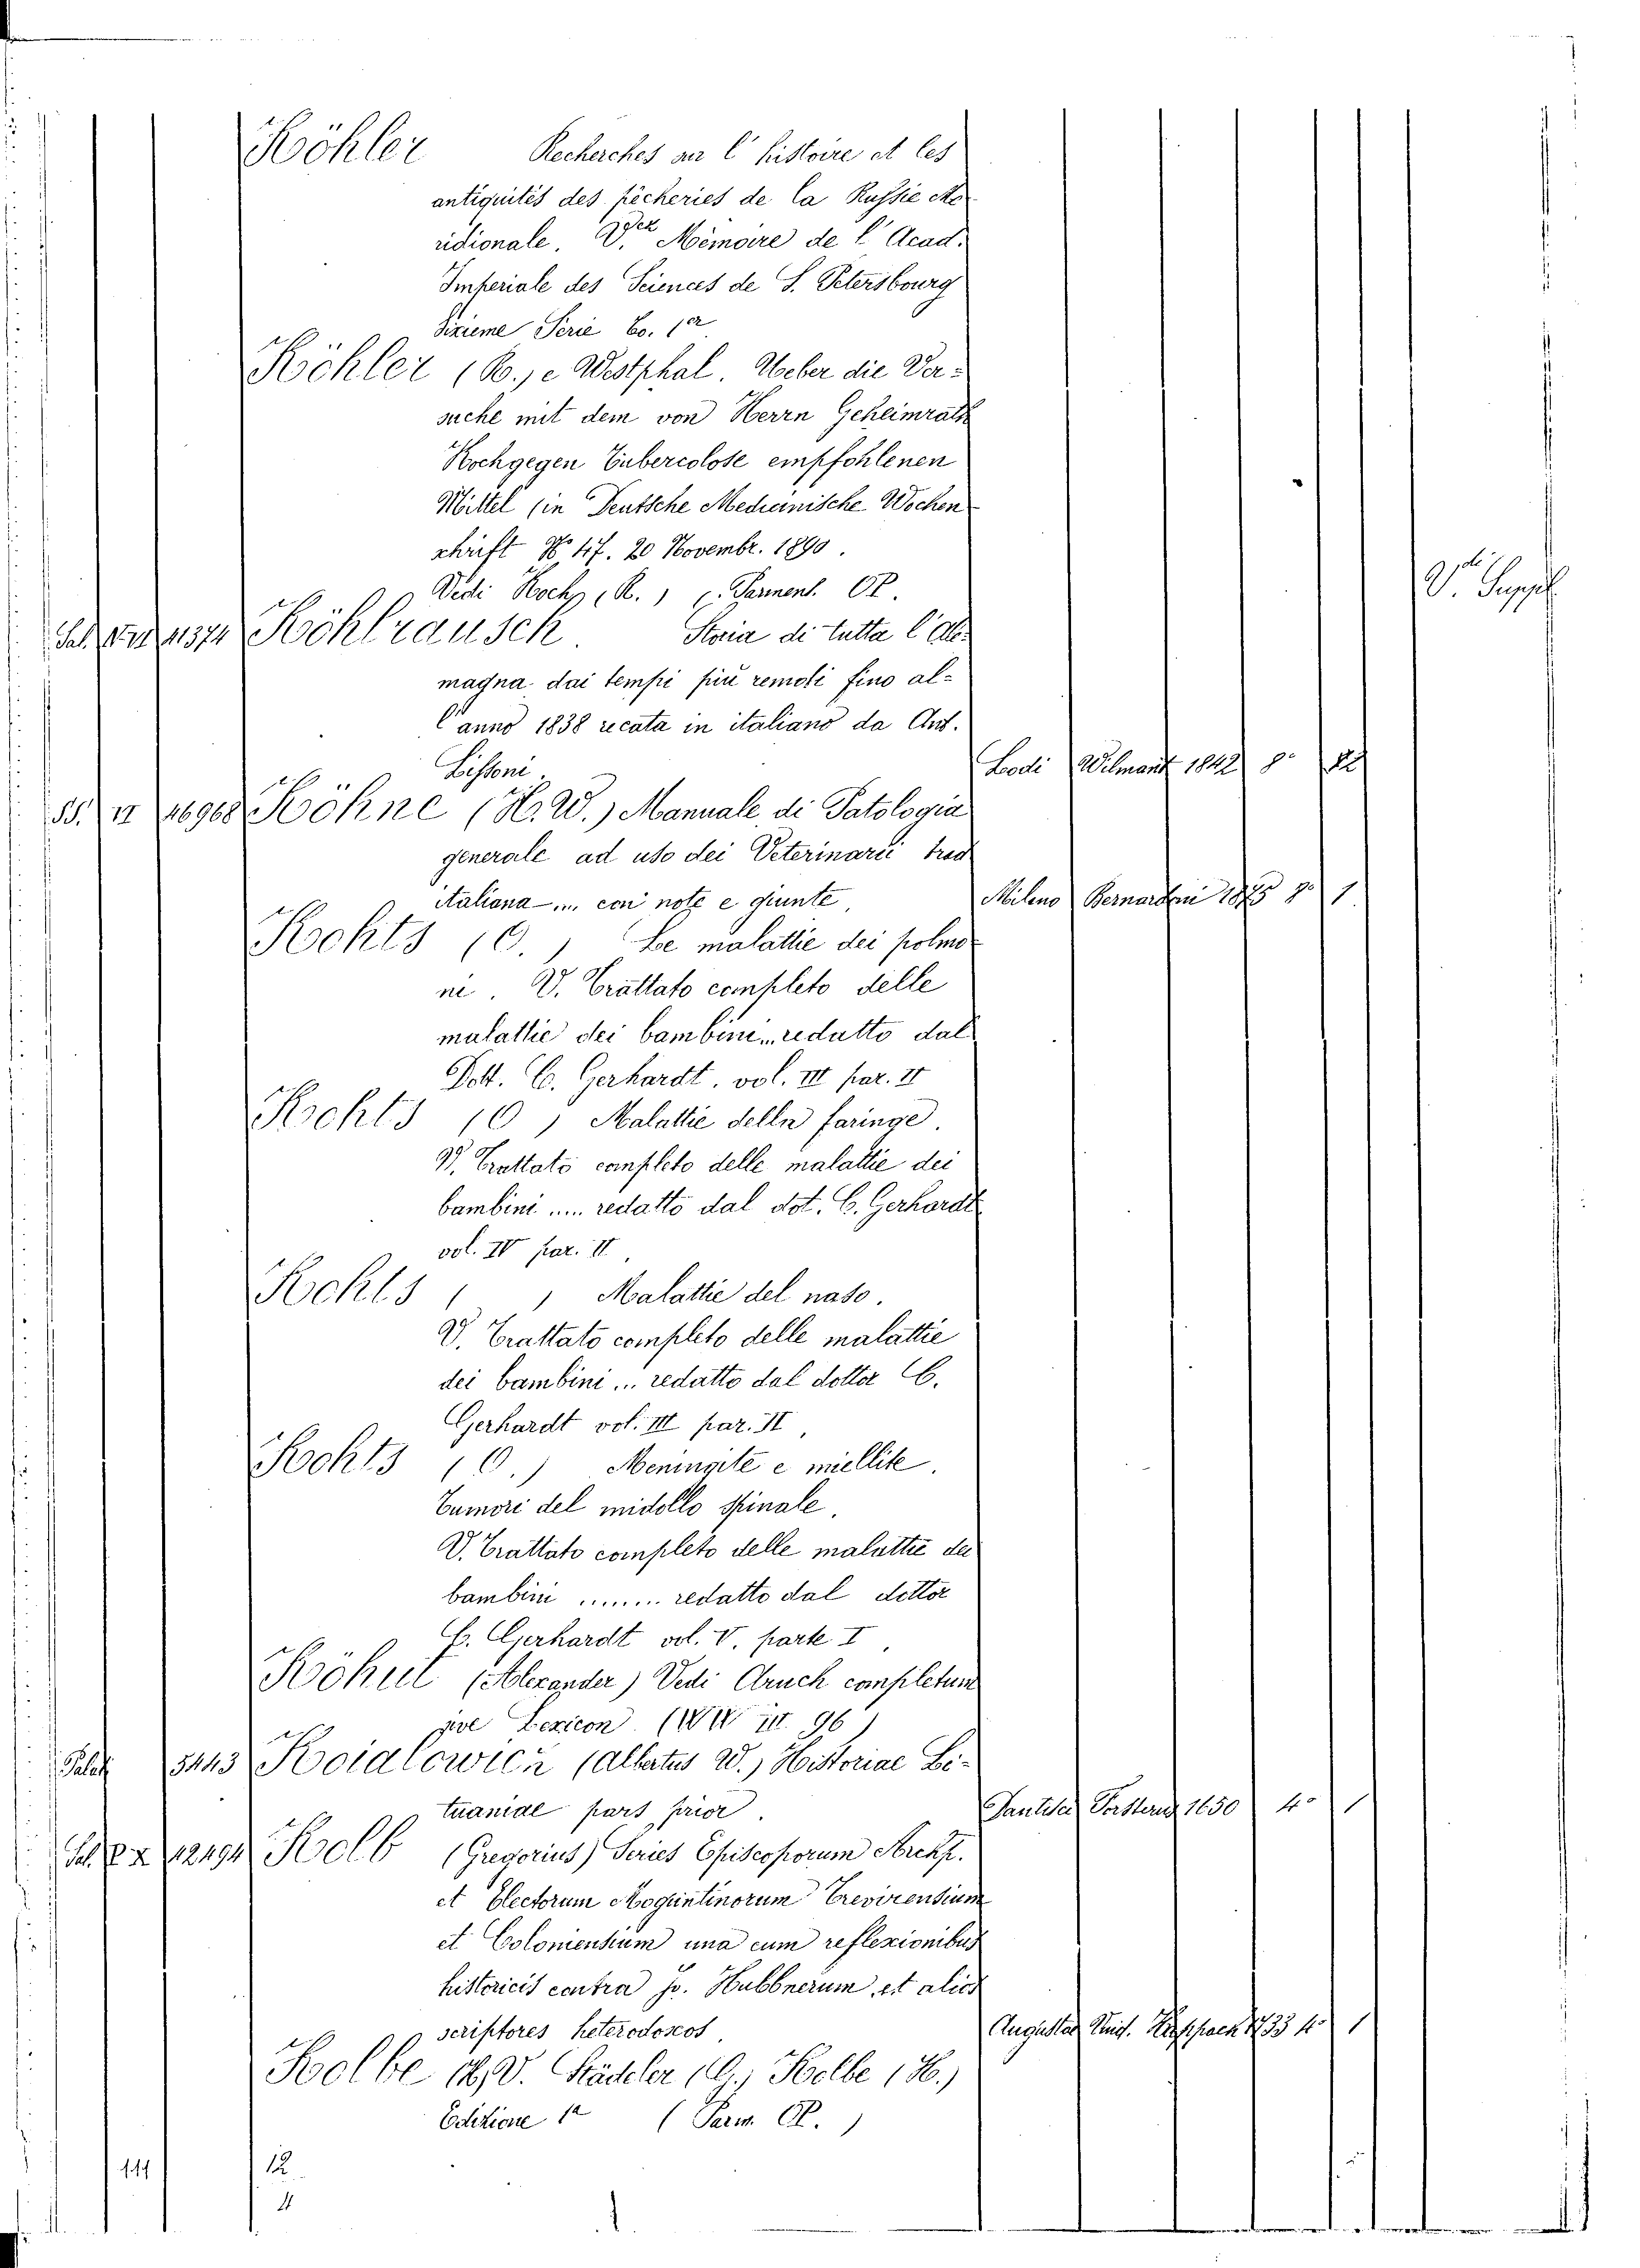 Köhler Recherches sur l'histoire et les
antiquités des pêcheries de la Russie Me
ridionale. V. Mémoire de l'Acad.
Imperiale des Sciences de S. Petersbourg
Sixieme Serie to. 1er
Köhler (R.) e Westphal. Ueber die Ver-
suche mit dem von Herrn Geheimrath
Koch gegen Tubercolose empfohlenen
Mittel (in Deutsche Medicinische Wochen
schrift No 47. 20 Novembr. 1890.
Vedi Koch (R.) V. Suppl.
Pal. 11374 Köhlrausch Storia di tutta l'Ale-
magna dai tempi più remoti fino al-
l'anno 1838 recata in italiano da Ant.
Lissoni. Lodi Wilmant 1842 8°
SS. 16968 Köhne (H. W.) Manuale di Patologia
generale ad uso dei Veterinarii trad
italiana .... con note e giunte, Milano Bernardoni 1875 8° 1
Kohts (O.) Le malattie dei polmo
ni. V. Trattato completo delle
malattie dei bambini... redatto dal
Dott. C. Gerhardt. vol. III par. II
Kohts (O) Malattie della faringe.
V. Trattato completo delle malattie dei
bambini .... redatto dal dot. C. Gerhardt
vol. IV par. II
Kohts ( ) Malattie del naso.
V. Trattato completo delle malattie
dei bambini ... redatto dal dottor C.
Gerhardt vol. III par. II
Kohts (O.) Meningite e miellite.
Tumori del midollo spinale.
V. Trattato completo delle malattie dei
bambini ....... redatto dal dottor
C. Gerhardt vol. V. parte I
Köhut (Alexander) Vedi Aruch completum
sive Lexicon. (WW III. 96)
Palat 5443 Koialowicz (Albertus W.) Historiae Li-
tuaniae pars prior. 1650 4° 1
12494 Kolb (Gregorius) Series Episcoporum Archp.
et Electorum Moguntinorum Trevirensium
et Coloniensium una cum reflexionibus
historicis contra Jo. Hubbnerum et alios
scriptores heterodoxos Augustae 1733 4° 1
Kolbe H. V. Städeler (G.) Kolbe (H.)
Edizione 1a (Parm. OP.)
111 12
4